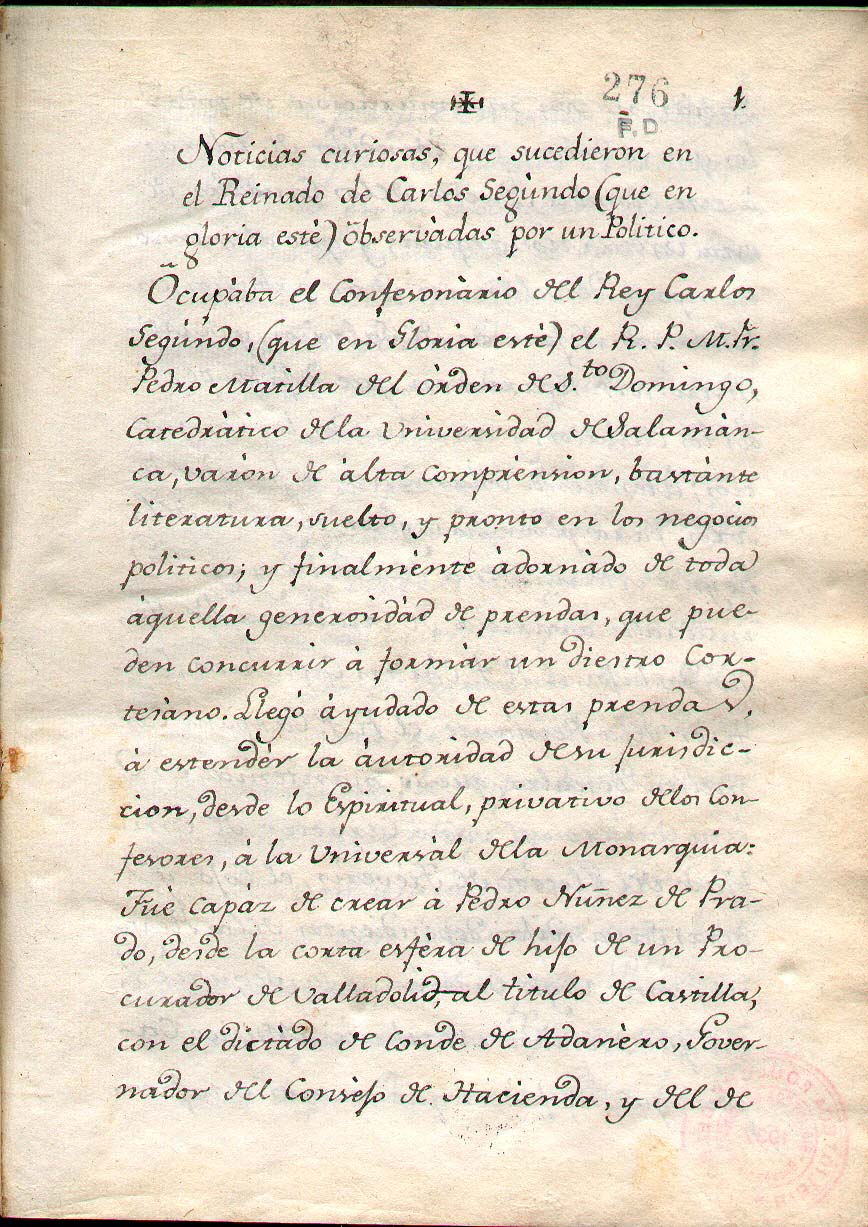 276
1.
F.D
Noticias curiosas, que sucedieron en
el Reinado de Carlos Segùndo (que en
gloria estè) observàdas por un Politico.
Ocupàba el Confesonàrio del Rey Carlos
Segùndo, (que en Gloria estè) el R. P. M. Fr.
Pedro Matilla del òrden de S.to Domingo,
Catedràtico de la Universidad de Salamàn-
ca, varòn de àlta comprènsion, bastànte
literatura, suelto, y pronto en los negocios
politicos; y finalmènte àdornàdo de toda
àquella generosidàd de prendas, que pue-
den concurrir à formàr un diestro Cor-
tesàno. Llegò àyudado de estas prendas,
à estendèr la àutoridad de su jurisdic-
cion, desde lo Espiritual, privativo de los Con-
fesores, à la Universàl de la Monarquia:
Fuè capàz de crear à Pedro Nuñez de Pra-
do, desde la corta esfèra de hijo de un Pro-
curador de Valladolid, al titulo de Castilla,
con el dictàdo de Conde de Adanèro, Gover-
nador del Consèjo de Hacienda, y del de